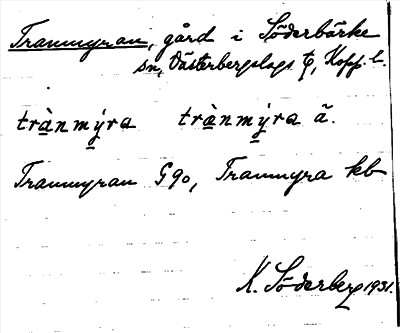 Tranmyran, gård i Söderbärke
sn, Västerbergslags tg, Kopp. l.
trànmýra trànmýra ä.
Tranmyran G 90, Tranmyra kb
K. Söderberg 1931.